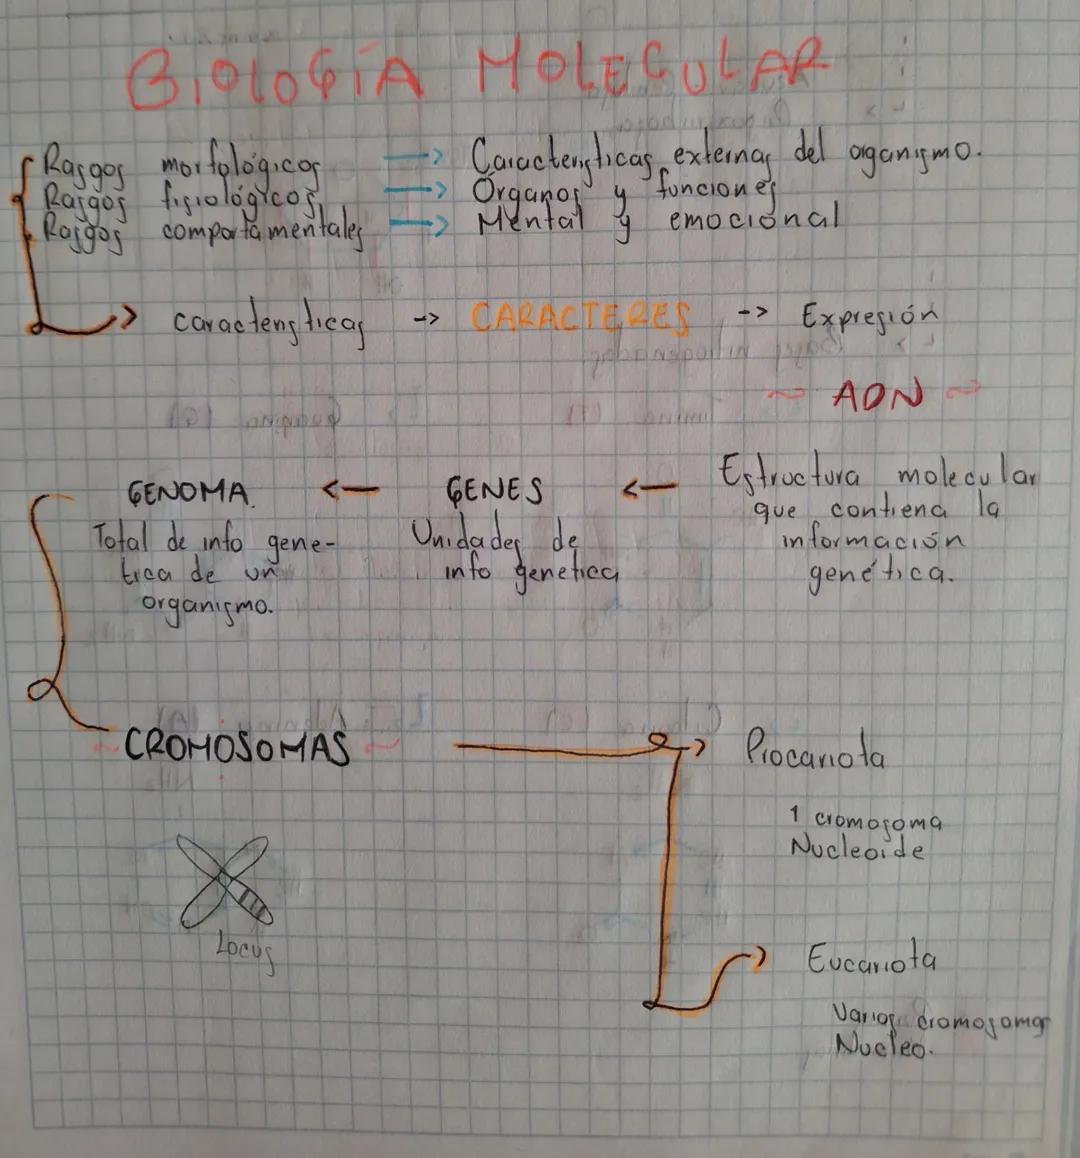 BIOLOGÍA MOLECULAR
Rasgos morfológicos --> Características externas del organismo.
Rasgos fisiológicos --> Organos y funciones
Rasgos comportamentales --> Mental y emocional
características -> CARACTERES -> Expresión
~ ADN ~
GENOMA. <- GENES <- Estructura molecular
que contiena la
información
genética.
Unidades de
info genetica
Total de info gene-
tica de un
organismo.
~ CROMOSOMAS ~
Procariota
1 cromosoma
Nucleoide
Locus
Eucariota
Varios cromosomas
Nucleo.